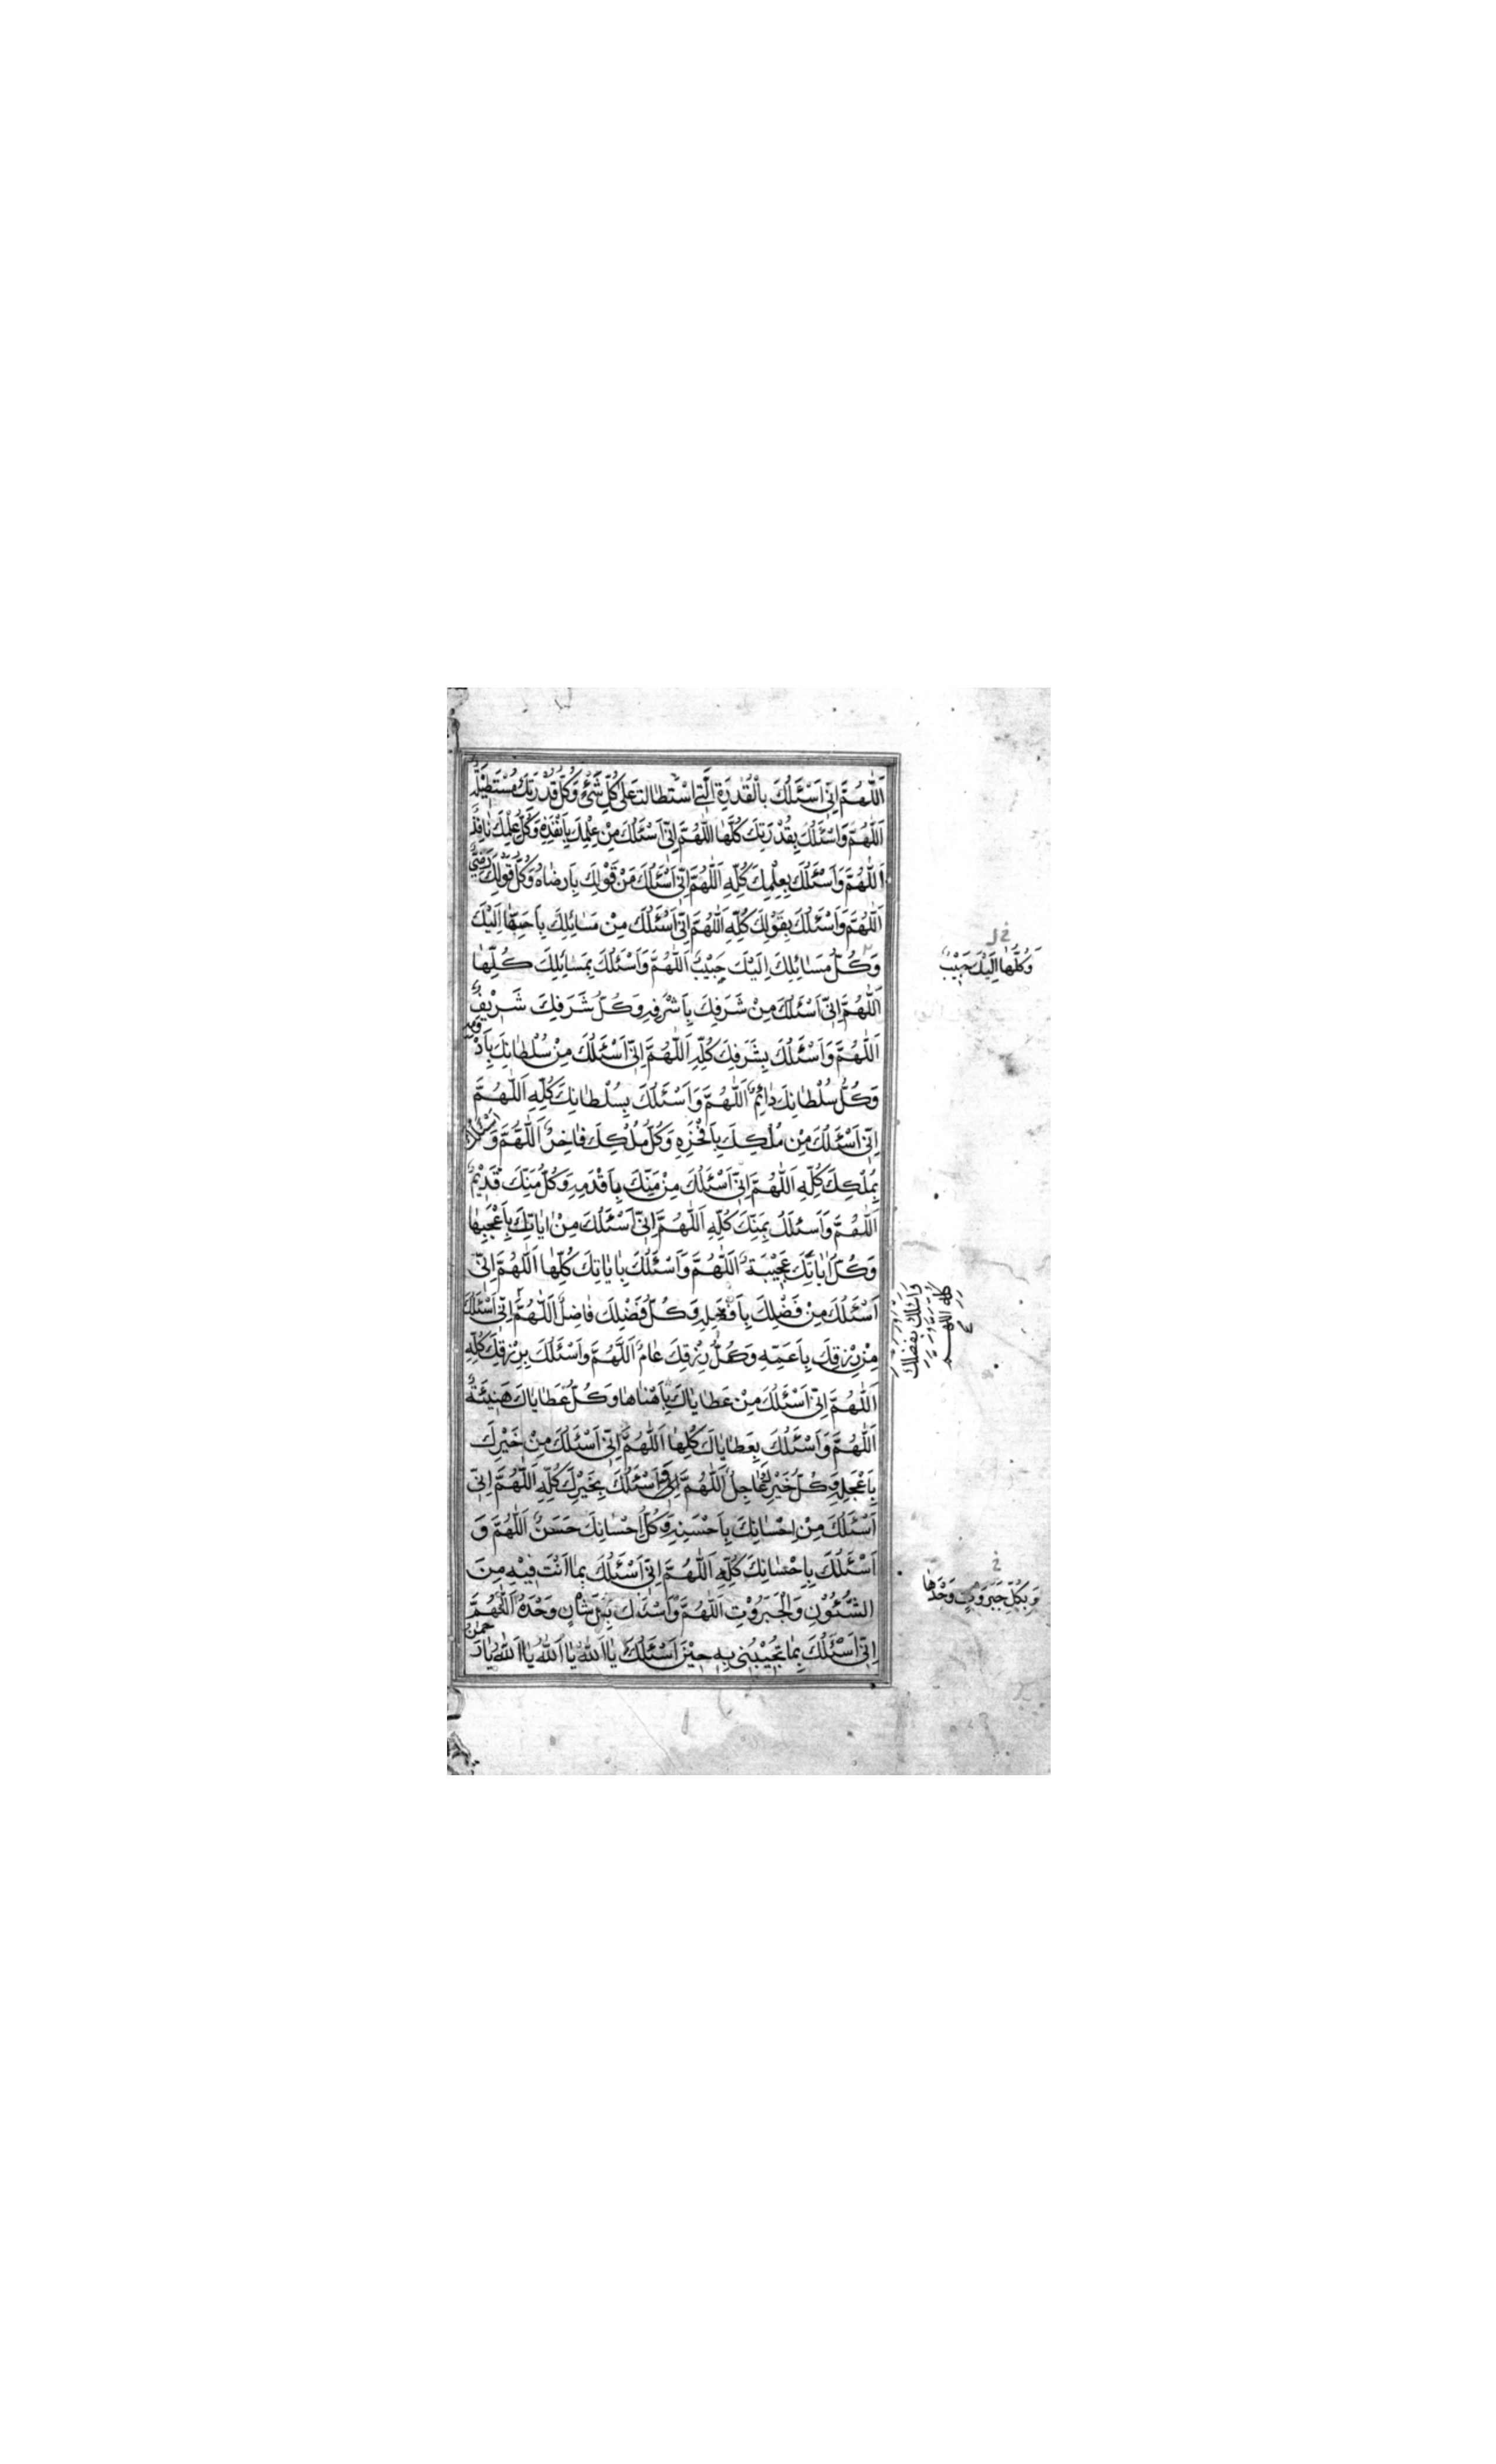 اَللّٰهُمَّ اِنّى اَسْئَلُكَ بِالْقُدْرَةِ الَّتى اسْتَطالَتْ عَلى كُلِّ شَئٍْ وَكُلُّ قُدْرَتِكَ مُسْتَطيْلَةٌ
اَللّٰهُمَّ وَاَسْئَلُكَ بِقُدْرَتِكَ كُلِّها اَللّٰهُمَّ اِنّى اَسْئَلُكَ مِنْ عِلْمِكَ بِاَنْفَذِهِ وَكُلُّ عِلْمِكَ نافِذٌ
اَللّٰهُمَّ وَاَسْئَلُكَ بِعِلْمِكَ كُلِّهِ اَللّٰهُمَّ اِنّى اَسْئَلُكَ مِنْ قَوْلِكَ بِاَرضاهُ وَكُلُّ قَوْلِكَ رَضِىٌّ
اَللّٰهُمَّ وَاَسْئَلُكَ بِقَوْلِكَ كُلِّهِ اَللّٰهُمَّ اِنّى اَسْئَلُكَ مِنْ مَسائِلِكَ بِاَحَبِّها اِلَيْكَ
وَكُلُّ مَسائِلِكَ اِلَيْكَ حَبيْبَةٌ اَللّٰهُمَّ وَاَسْئَلُكَ بِمَسائِلِكَ كُلِّها
وَكُلُّها اِلَيْكَ حَبيْبٌ
اَللّٰهُمَّ اِنّى اَسْئَلُكَ مِنْ شَرَفِكَ بِاَشْرَفِهِ وَكُلُّ شَرَفِكَ شَريْفٌ
اَللّٰهُمَّ وَاَسْئَلُكَ بِشَرَفِكَ كُلِّهِ اَللّٰهُمَّ اِنّى اَسْئَلُكَ مِنْ سُلْطانِكَ بِاَدْوَمِهِ
وَكُلُّ سُلْطانِكَ دائِمٌ اَللّٰهُمَّ وَاَسْئَلُكَ بِسُلْطانِكَ كُلِّهِ اَللّٰهُمَّ
اِنّى اَسْئَلُكَ مِنْ مُلْكِكَ بِاَفْخَرِهِ وَكُلُّ مُلْكِكَ فاخِرٌ اَللّٰهُمَّ وَاَسْئَلُكَ
بِمُلْكِكَ كُلِّهِ اَللّٰهُمَّ اِنّى اَسْئَلُكَ مِنْ مَنِّكَ بِاَقْدَمِهِ وَكُلُّ مَنِّكَ قَديْمٌ
اَللّٰهُمَّ وَاَسْئَلُكَ بِمَنِّكَ كُلِّهِ اَللّٰهُمَّ اِنّى اَسْئَلُكَ مِنْ اياتِكَ بِاَعْجَبِها
وَكُلُّ اياتِكَ عَجيْبَةٌ اَللّٰهُمَّ وَاَسْئَلُكَ بِاياتِكَ كُلِّها اَللّٰهُمَّ اِنّى
اَسْئَلُكَ مِنْ فَضْلِكَ بِاَفْضَلِهِ وَكُلُّ فَضْلِكَ فاضِلٌ اَللّٰهُمَّ اِنّى اَسْئَلُكَ
وَاَسْئَلُكَ بِفَضْلِكَ
كُلِّهِ اَللّٰهُمَّ
مِنْ رِزْقِكَ بِاَعَمِّهِ وَكُلُّ رِزْقِكَ عامٌّ اَللّٰهُمَّ وَاَسْئَلُكَ بِرِزْقِكَ كُلِّهِ
اَللّٰهُمَّ اِنّى اَسْئَلُكَ مِنْ عَطاياكَ بِاَهْناها وَكُلُّ عَطاياكَ هَنيئَةٌ
اَللّٰهُمَّ وَاَسْئَلُكَ بِعَطاياكَ كُلِّها اَللّٰهُمَّ اِنّى اَسْئَلُكَ مِنْ خَيْرِكَ
بِاَعْجَلِهِ وَكُلُّ خَيْرِكَ عاجِلٌ اَللّٰهُمَّ اِنّى اَسْئَلُكَ بِخَيْرِكَ كُلِّهِ اَللّٰهُمَّ اِنّى
اَسْئَلُكَ مِنْ اِحْسانِكَ بِاَحْسَنِهِ وَكُلُّ اِحْسانِكَ حَسَنٌ اَللّٰهُمَّ وَ
اَسْئَلُكَ بِاِحْسانِكَ كُلِّهِ اَللّٰهُمَّ اِنّى اَسْئَلُكَ بِما اَنْتَ فيْهِ مِنَ
الشُّئُوْنِ وَالْجَبَرُوْتِ اَللّٰهُمَّ وَاَسْئَلُكَ بِكُلِّ شَأْنٍ وَحْدَهُ اَللّٰهُمَّ
وَبِكُلِّ جَبَرُوْتٍ وَحْدَها
اِنّى اَسْئَلُكَ بِما تُجيْبُنى بِهِ حيْنَ اَسْئَلُكَ يا اَللّٰهُ يا اَللّٰهُ يا اَللّٰهُ يا رَحْمٰنُ